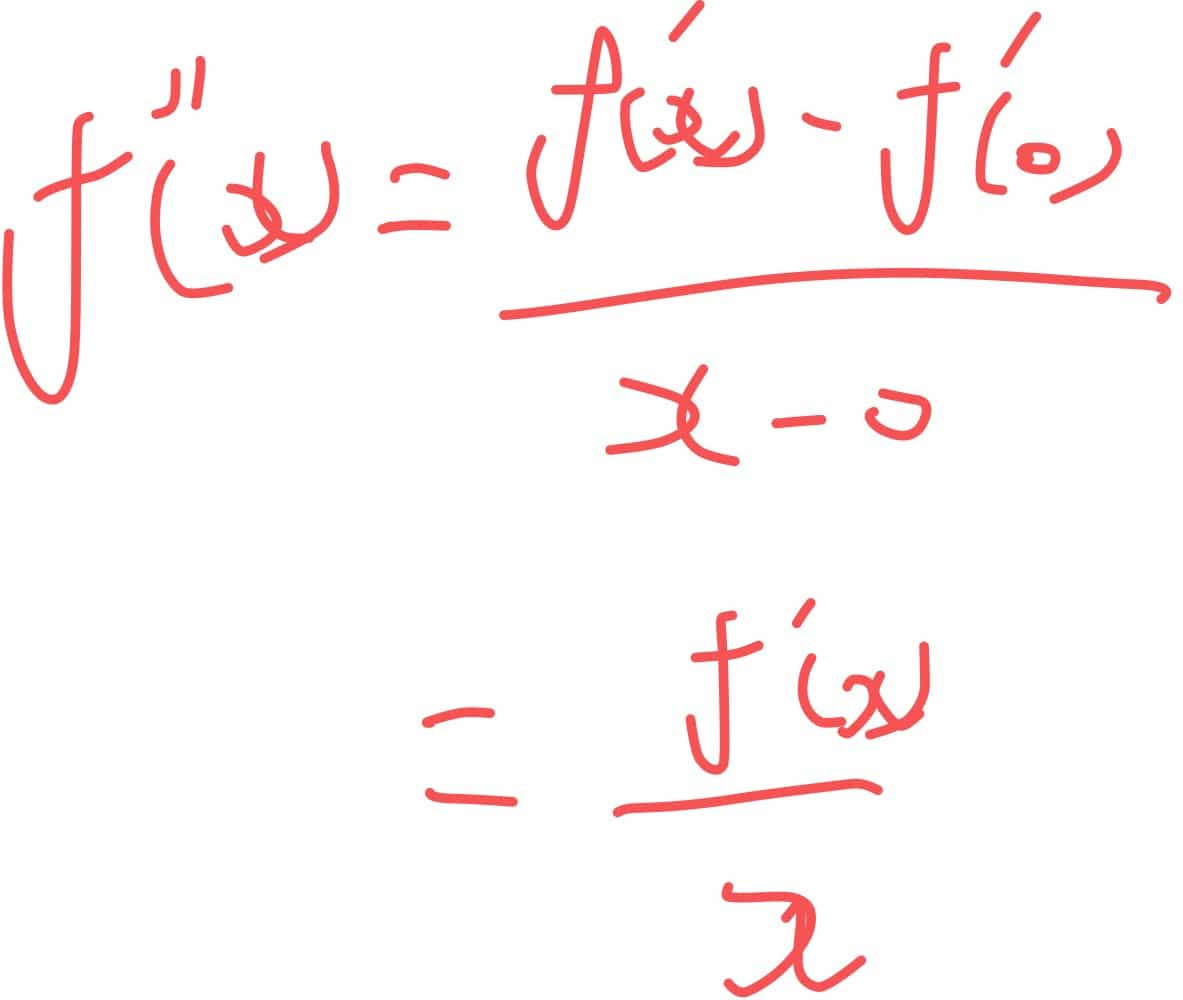 f''(x) = (f'(x) - f'(0)) / (x - 0)
= f'(x) / x